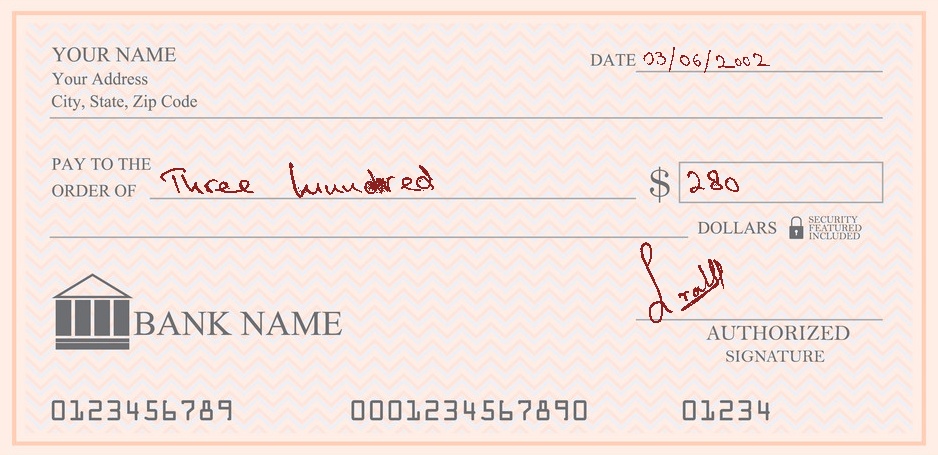 YOUR NAME
Your Address
City, State, Zip Code
DATE 03/06/2002
PAY TO THE
ORDER OF Three hundred $ 280
DOLLARS SECURITY FEATURED INCLUDED
BANK NAME
AUTHORIZED
SIGNATURE
0123456789 0001234567890 01234